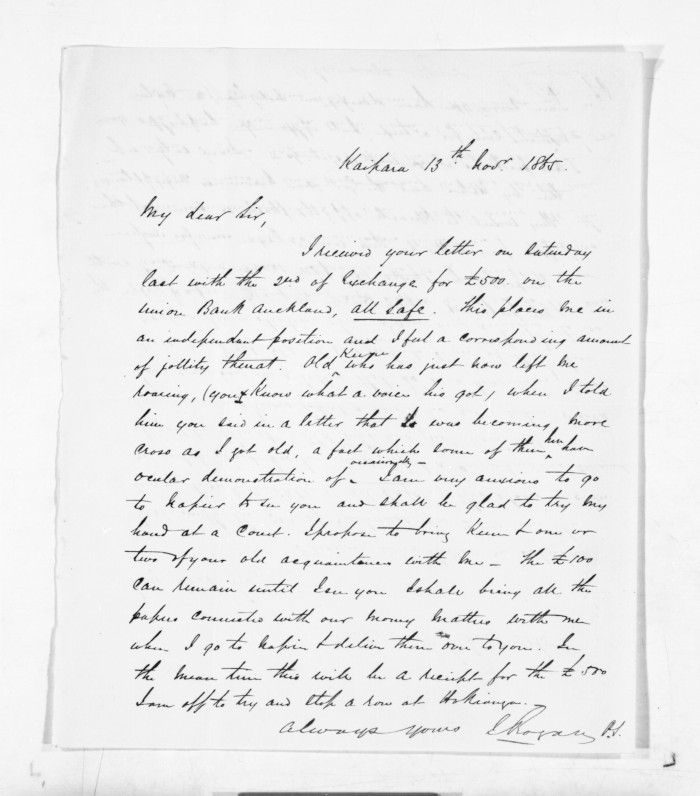 Kaipara 13th Novr 1865.
My dear Sir,
I received your letter on Saturday
last with the 2nd of Exchange for £500. on the
Union Bank Auckland, all safe. This places me in
an independent position and I feel a corresponding amount
of jollity thereat. Old Keene who has just now left me
roaring, (you know what a voice his got) when I told
him you said in a letter that I was becoming more
cross as I got old, a fact which some of them here have
ocular demonstration of occasionally – I am very anxious to go
to Napier to see you and shall be glad to try my
hand at a Court. I propose to bring Keene & one or
two of your old acquaintances with me – The £100
can remain until I see you I shall bring all the
papers connected with our money matters with me
when I go to Napier & deliver them over to you. In
the mean time this will be a receipt for the £500
I am off to try and stop a row at Hokianga. –
Always yours J Rogan